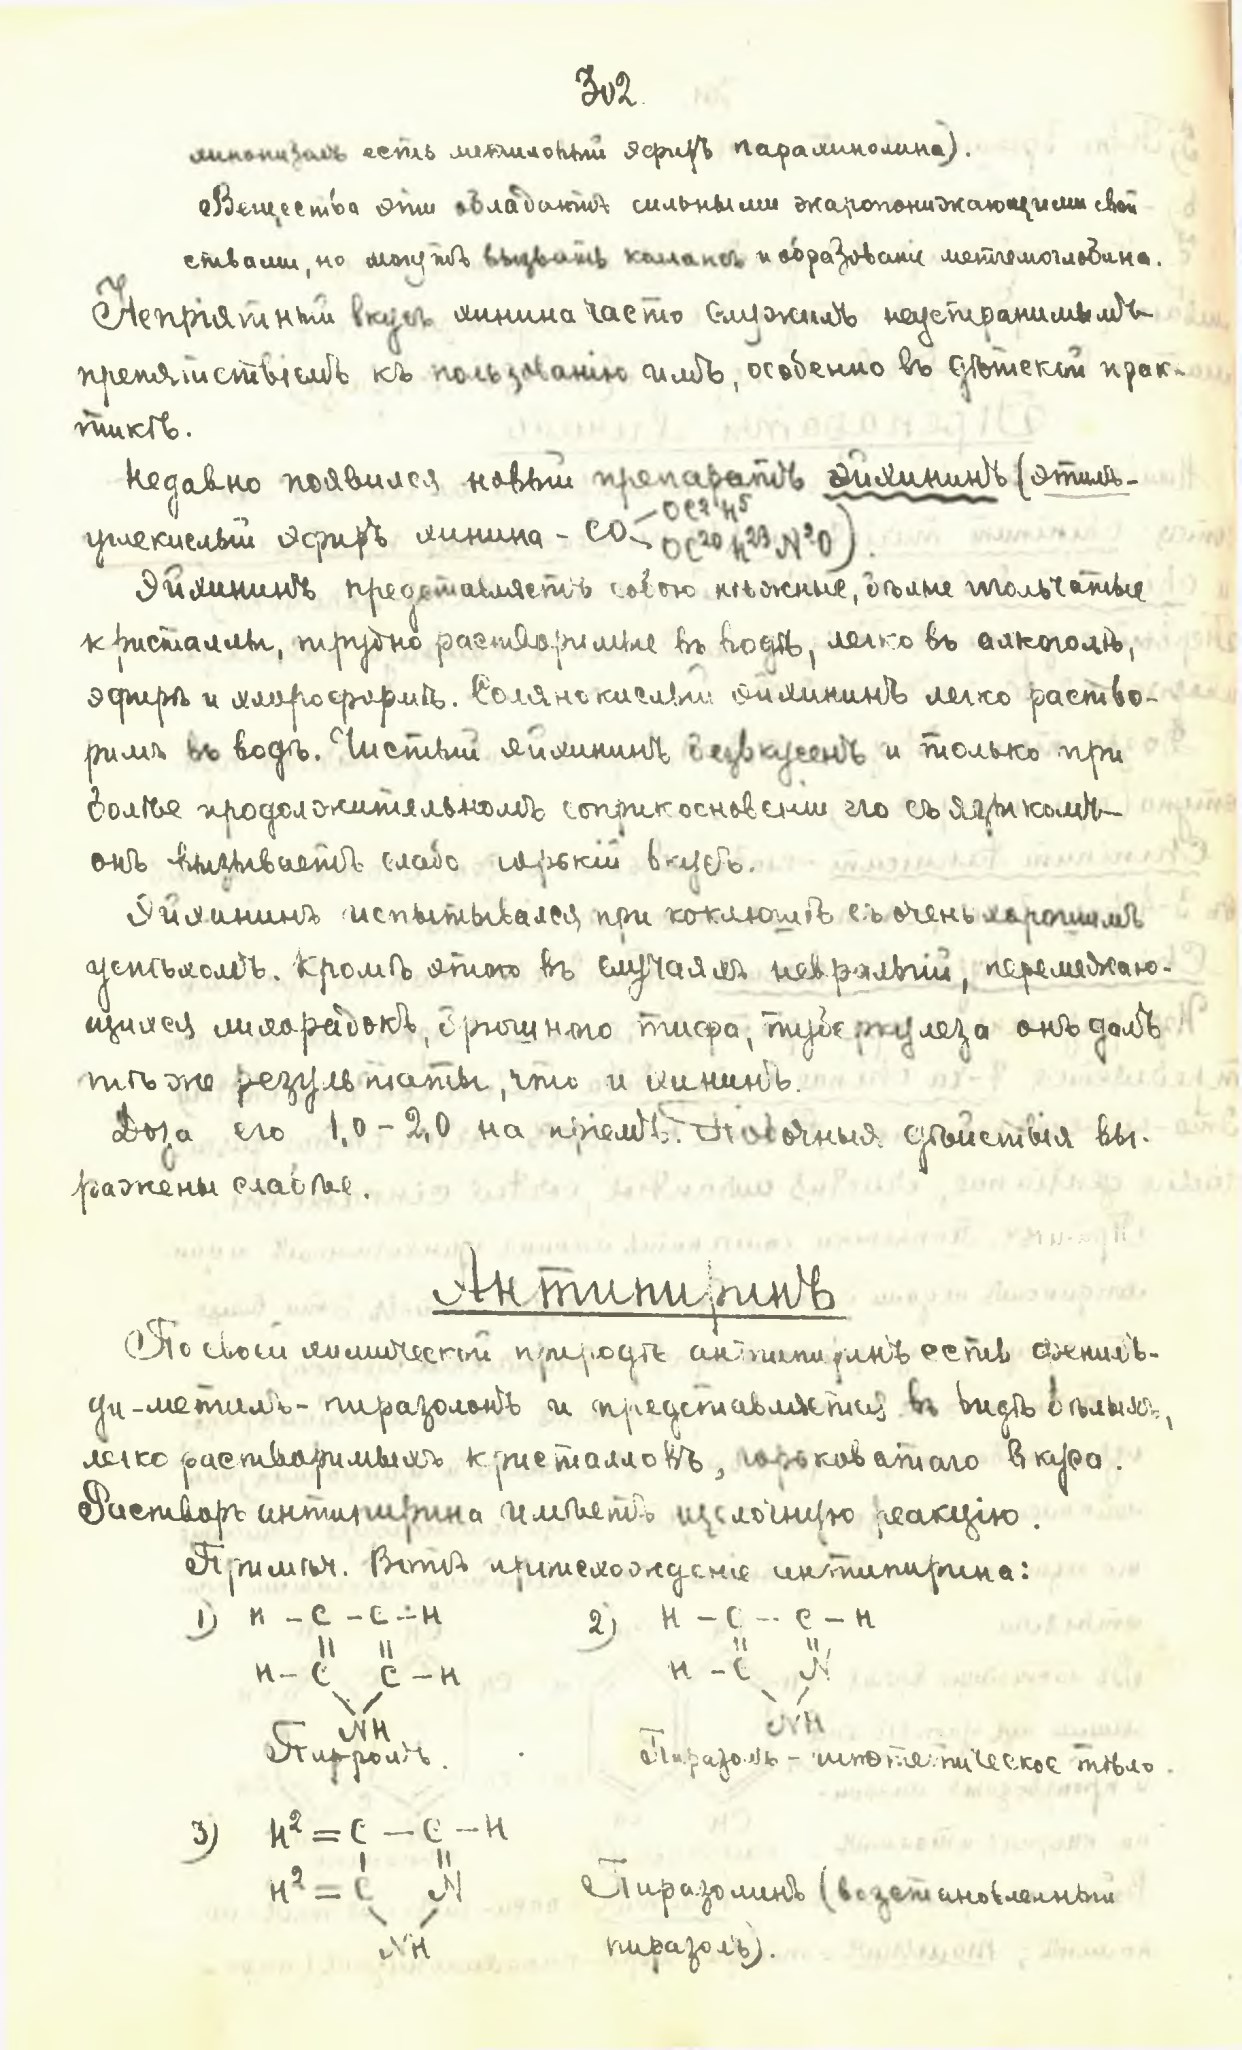 302
хинопизалъ есть метиловый эфиръ парахинолина).
Вещества эти обладаютъ сильными жаропонижающими свой-
ствами, но могутъ вызвать коллапсъ и образованіе метгемоглобина.
Непріятный вкусъ хинина часто служилъ неустранимымъ
препятствіемъ къ пользованію имъ, особенно въ дѣтской прак-
тикѣ.
Недавно появился новый препаратъ эйхининъ (этилъ-
углекислый эфиръ хинина - CO OC²H⁵
OC²⁰H²³N²O).
Эйхининъ представляетъ собою нѣжные, бѣлые игольчатые
кристаллы, трудно растворимые въ водѣ, легко въ алкоголѣ,
эфирѣ и хлороформѣ. Солянокислый эйхининъ легко раство-
римъ въ водѣ. Чистый эйхининъ безвкусенъ и только при
болѣе продолжительномъ соприкосновеніи его съ языкомъ
онъ вызываетъ слабо горькій вкусъ.
Эйхининъ испытывался при коклюшѣ съ очень хорошимъ
успѣхомъ. Кромѣ этого въ случаяхъ невралгій, перемежаю-
щихся лихорадокъ, брюшного тифа, туберкулеза онъ далъ
тѣ же результаты, что и хининъ.
Доза его 1,0 - 2,0 на пріемъ. Побочныя дѣйствія вы-
ражены слабѣе.
Антипиринъ
По своей химической природѣ антипиринъ есть фенилъ-
ди-метилъ-пиразолонъ и представляется въ видѣ бѣлыхъ,
легко растворимыхъ кристалловъ, горьковатаго вкуса.
Растворъ антипирина имѣетъ щелочную реакцію.
Примѣч. Вотъ происхожденіе антипирина:
1) H - C - C - H 2) H - C - C - H
H - C C - H H - C N
NH NH
Пирролъ. Пиразолъ - гипотетическое тѣло.
3) H² = C - C - H
H² = C N Пиразолинъ (возстановленный
NH пиразолъ).